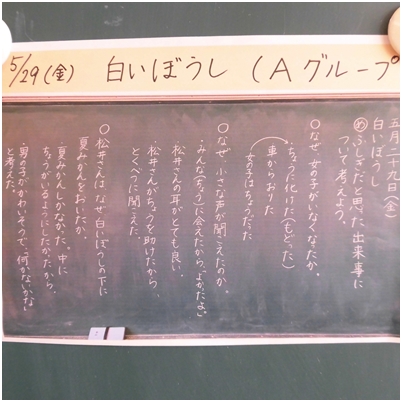 5/29(金) 白いぼうし (Aグループ)
五月二十九日(金)
白いぼうし
め ふしぎだと思った出来事に
ついて考えよう。
○なぜ、女の子がいなくなったか。
・ちょうに化けた(もどった)
車からおりた
女の子はちょうだった
○なぜ、小さな声が聞こえたのか。
・みんな(ちょう)に会えたから「よかったよ」
松井さんの耳がとても良い。
松井さんがちょうを助けたから、
とくべつに聞こえた。
○松井さんはなぜ白いぼうしの下に
夏みかんをおいたか
・夏みかんしかなかった。中に
ちょうがいるようにしたかったから。
・男の子がかわいそうで、「何かないかな」
と考えた。